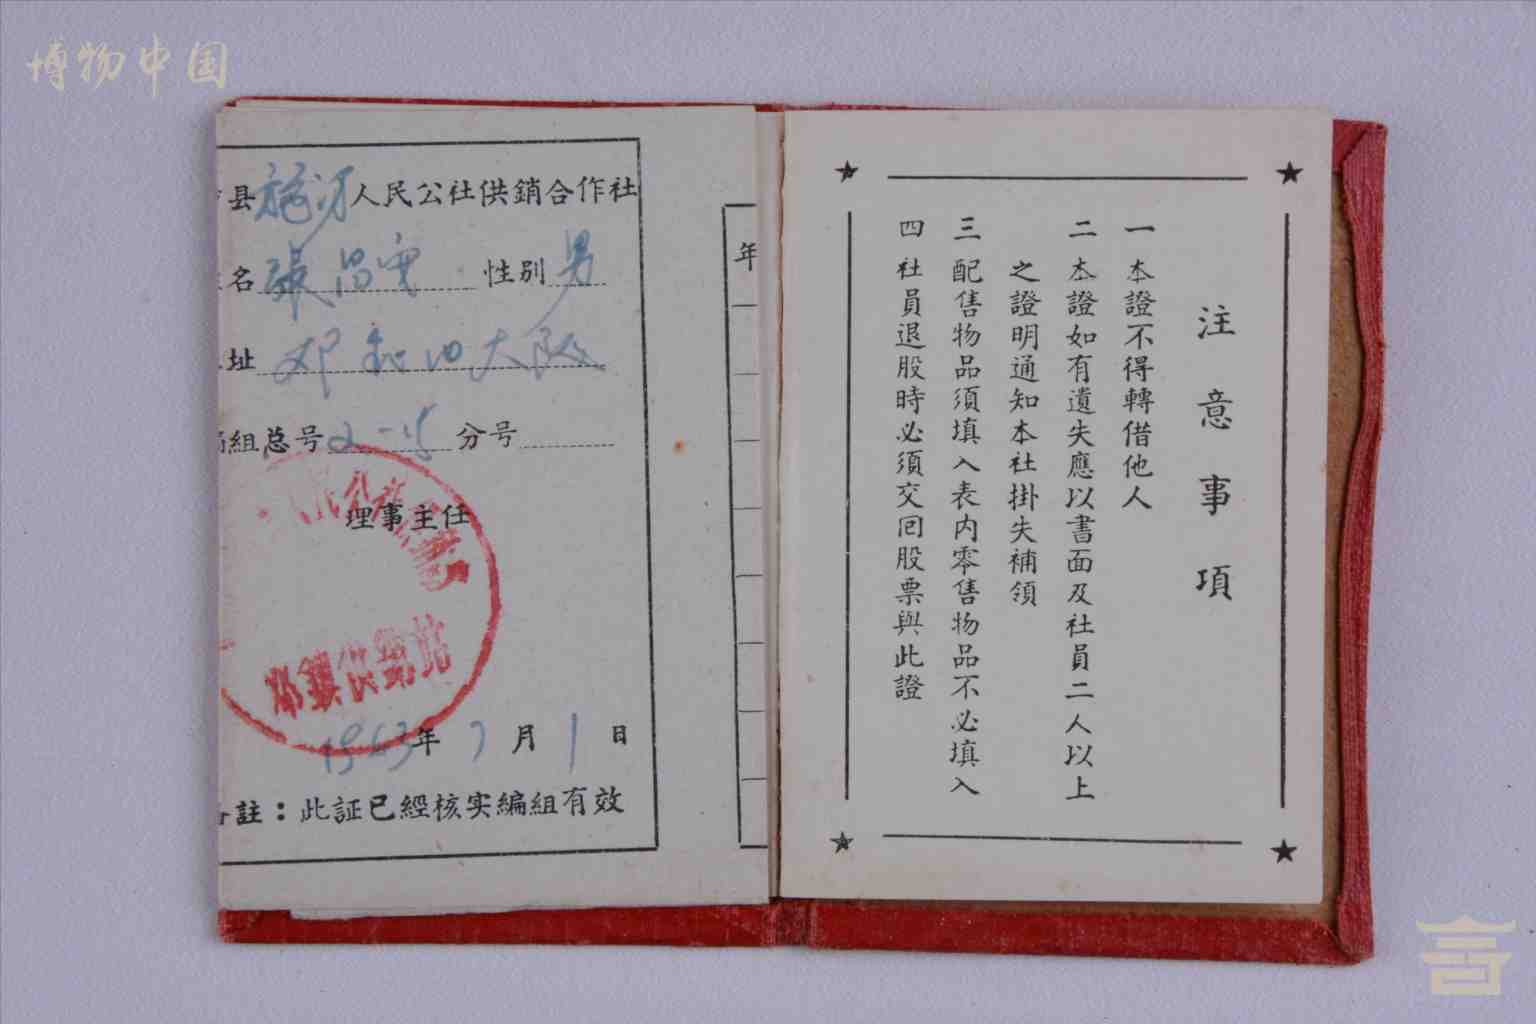 博物中国
县 人民公社供銷合作社
名 張昌 性別 男
址 邓 大队
組总号 2-15 分号
理事主任
供銷站
1963年7月1日
註：此証已經核实編組有效
年
注意事項
一 本證不得轉借他人
二 本證如有遺失應以書面及社員二人以上
之證明通知本社掛失補領
三 配售物品須填入表內零售物品不必填入
四 社員退股時必須交回股票與此證